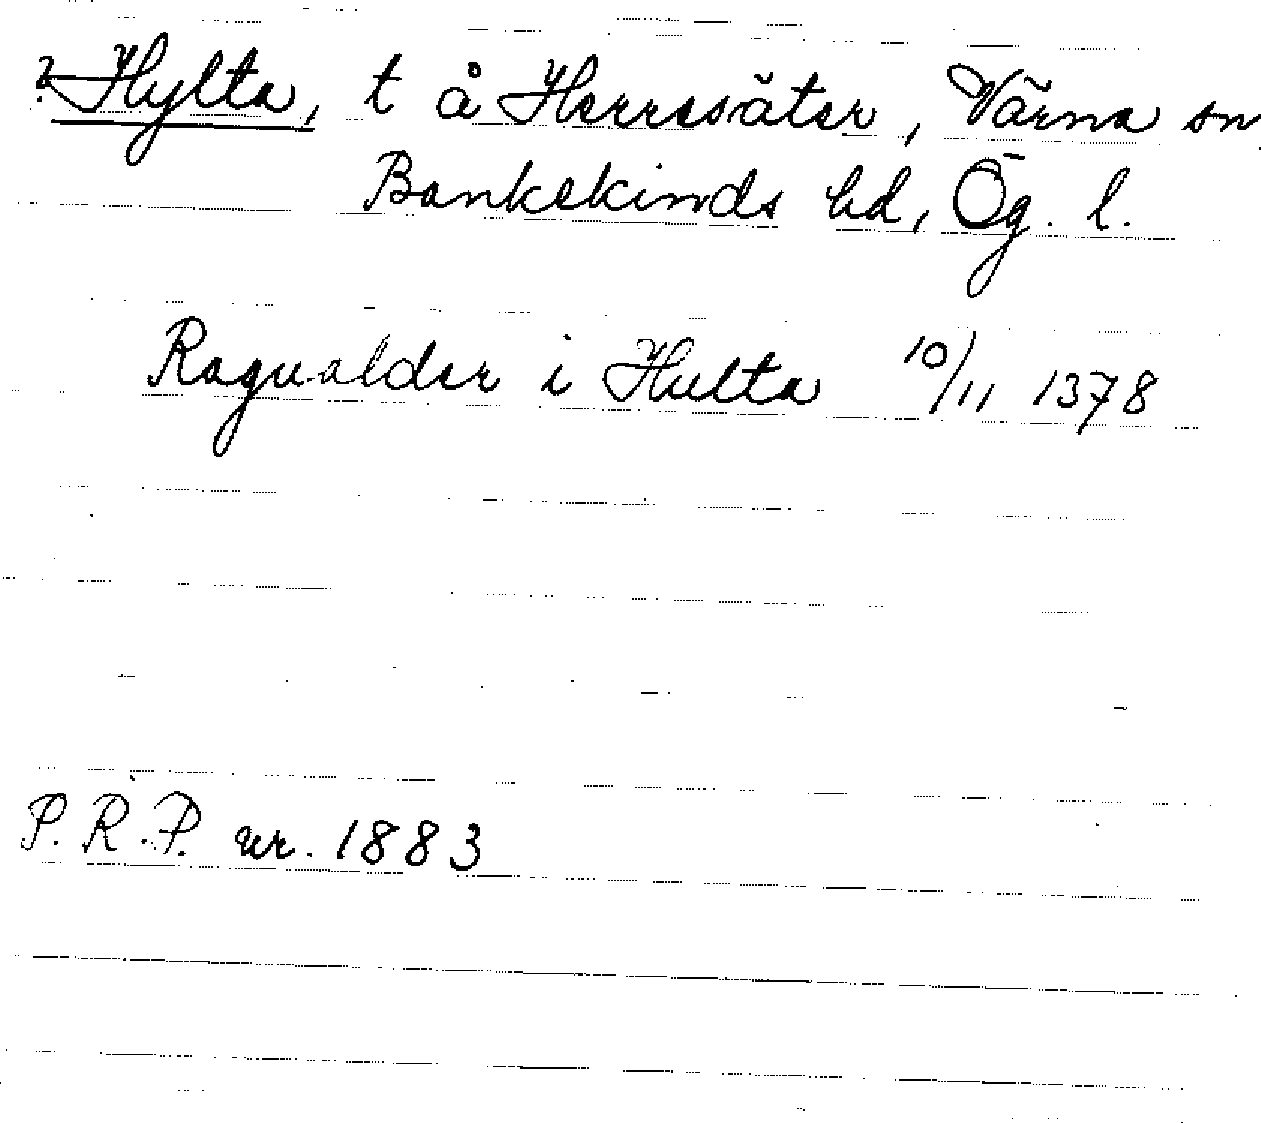 ? Hylta, t å Herresäter, Värna sn
Bankekinds hd, Ög. l.
Ragualder i Hulta 10/11 1378
P. R. P. nr. 1883